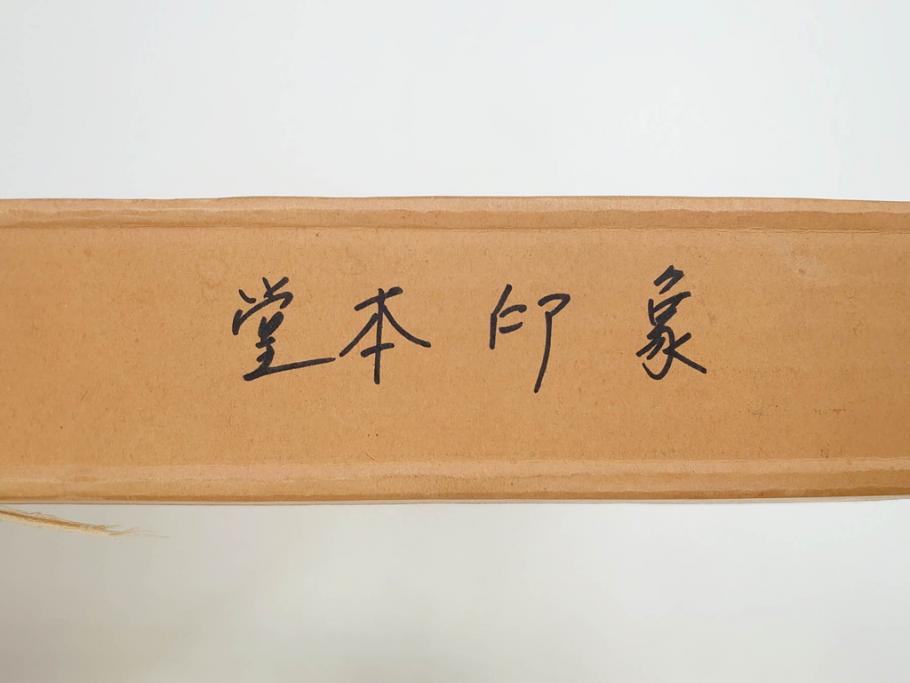 堂本印象